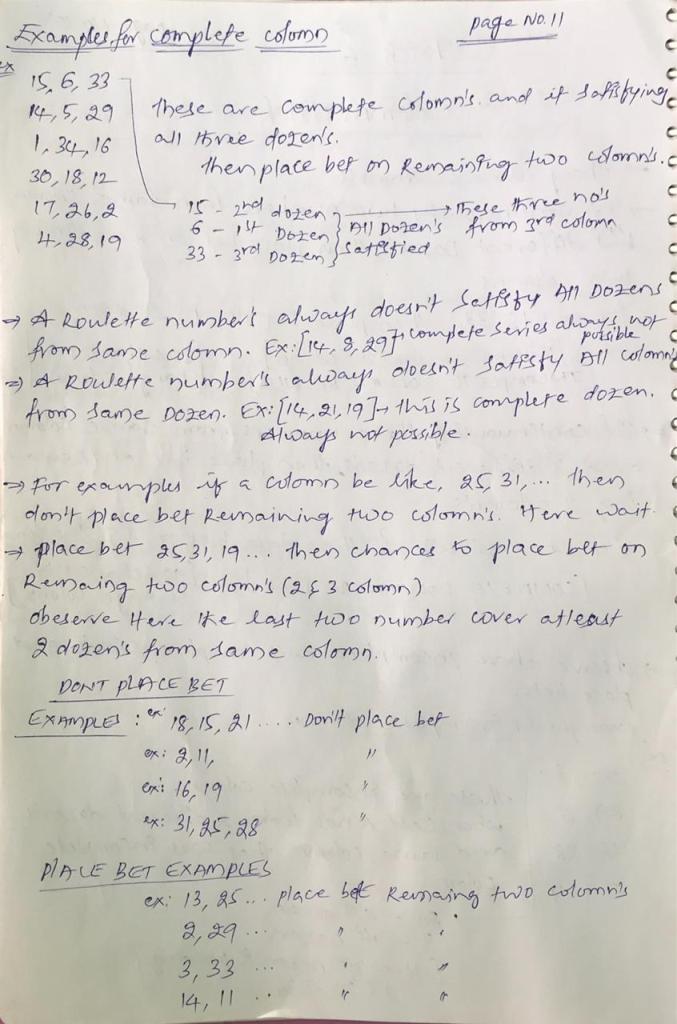 Examples for complete colomn
page No.11
ex
15, 6, 33
14, 5, 29
1, 34, 16
30, 18, 12
17, 26, 2
4, 28, 19
These are complete colomn's. and it satisfying
all three dozen's.
then place bet on Remainting two colomn's.
15 - 2nd dozen
6 - 1st Dozen
33 - 3rd Dozen
All Dozen's
Satisfied
These three no's
from 3rd colomn
→ A Roulette number's always doesn't Satisfy All Dozens
from same colomn. Ex:[14, 8, 29]→complete series always not
possible
→ A Roulette number's always doesn't satisfy All colomn's
from same Dozen. Ex:[14, 21, 19]→ this is complete dozen.
Always not possible.
→ For examples if a colomn be like, 25, 31, ... then
don't place bet Remaining two colomn's. Here wait.
→ place bet 25, 31, 19 ... then chances to place bet on
Remaing two colomn's (2 & 3 colomn)
obeserve Here the last two number cover atleast
2 dozen's from same colomn.
DONT PLACE BET
EXAMPLES : ex: 18, 15, 21 .... Don't place bet
ex: 2, 11, "
ex: 16, 19 "
ex: 31, 25, 28 "
PlACE BET EXAMPLES
ex: 13, 25 ... place bet Remaing two colomn's
2, 29 ... " "
3, 33 ... " "
14, 11 .. " "